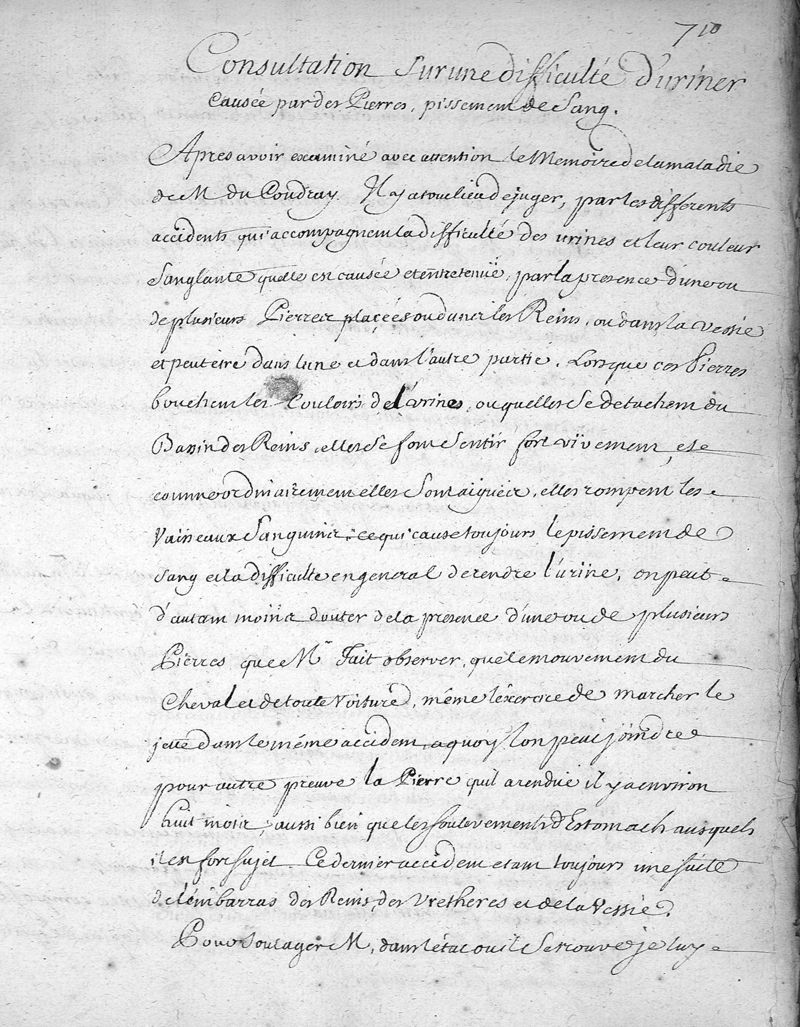 710
Consultation sur une difficulté d'uriner
Causée par des Pierres, pissement de Sang.
Apres avoir examiné avec attention le Memoire de la maladie
de M. du Coudray. Il y a tout lieu de juger, par les differents
accidents qui accompagnent la difficulté des urines et leur couleur
Sanglante quelle est causée et entretenüe, par la presence d'une ou
de plusieurs Pierres placées ou dans les Reins, ou dans la vessie
et peut etre dans lune et dans l'autre partie. Lorsque ces Pierres
bouchent les Couloirs de l'urines, ou quelles se detachent du
Bassin des Reins, elles se font sentir fort vivement, et
comme ordinairement elles sont aigues, elles rompent les
Vaisseaux Sanguins, ce qui cause toujours le pissement de
Sang et la difficulté en general de rendre l'urine, on peut
d'autant moins douter de la presence d'une ou de plusieurs
Pierres que Mr. Fait observer, que le mouvement du
Cheval et de toute Voiture, même l'exercice de marcher le
jette dans le même accident, a quoy l'on peut joindre
pour autre preuve la Pierre quil a rendüe il y a environ
huit mois, aussi bien que les soulevements d'Estomach ausquels
il est fort sujet. Ce dernier accident etant toujours une suite
de l'embarras des Reins, des Uretheres et de la Vessie.
Pour Soulager M. dans l'état ou il se trouve je luy